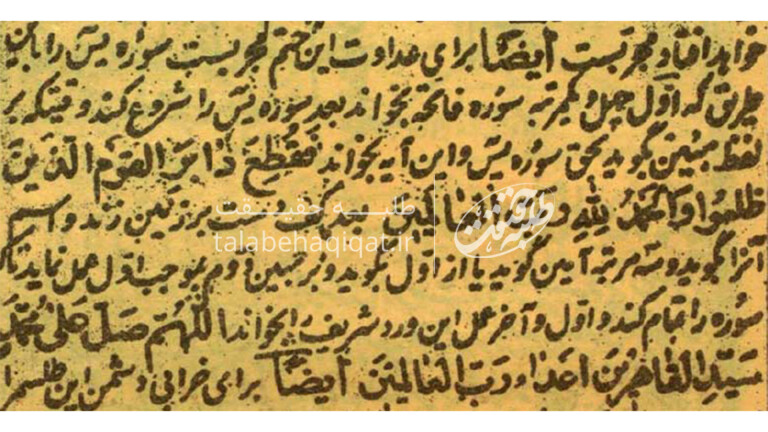 خواهد افتاد مجربست ایضًا برای عداوت این ختم مجربست سوره یٰس را باین
طریق که اول چهل و یکمرتبه سوره فاتحه بخواند بعد سوره یٰس را شروع کند وقتیکه بر
لفظ مبین گوید بحق سوره یٰس و این آیه بخواند فَقُطِعَ دَابِرُ الْقَوْمِ الَّذِینَ
ظَلَمُوا وَالْحَمْدُ لِلّٰهِ رَبِّ الْعَالَمِینَ دست بر زمین زند و اسم
آنرا گوید و سه مرتبه آمین گوید باز از اول گوید و بر مبین دوم بموجب اول عمل نماید تا
سوره را تمام کند و اول و آخر عمل این ورد شریف را بخواند اللّٰهُمَّ صَلِّ عَلیٰ مُحَمَّدٍ
سَیِّدِ الْقَاهِرِینَ اعداء رَبِّ الْعَالَمِینَ ایضًا برای خرابی دشمن این طلسم را
طلبه حقیقت
talabehaqiqat.ir
طلبه حقیقت